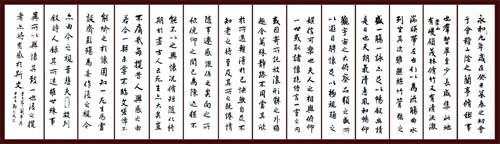 永和九年歲在癸丑暮春之初會
于會稽山陰之蘭亭修禊事
也群賢畢至少長咸集此地
有峻領茂林修竹又有清流激
湍暎帶左右引以為流觴曲水
列坐其次雖無絲竹管弦之
盛一觴一詠亦足以暢敘幽情
是日也天朗氣清惠風和暢仰
觀宇宙之大俯察品類之盛所
以遊目騁懷足以極視聽之
娛信可樂也夫人之相與俯仰
一世或取諸懷抱悟言一室之內
或因寄所託放浪形骸之外雖
趣舍萬殊靜躁不同當其欣
於所遇蹔得於己快然自足不
知老之將至及其所之既惓情
隨事遷感慨係之矣向之所
欣俛仰之間以為陳迹猶不
能不以之興懷況脩短隨化終
期於盡古人云死生亦大矣豈
不痛哉每攬昔人興感之由
若合一契未嘗不臨文嗟悼不
能喻之於懷固知一死生為虛
誕齊彭殤為妄作後之視今
亦由今之視昔悲夫故列
敘時人錄其所述雖世殊事
異所以興懷其致一也後之攬
者亦將有感於斯文